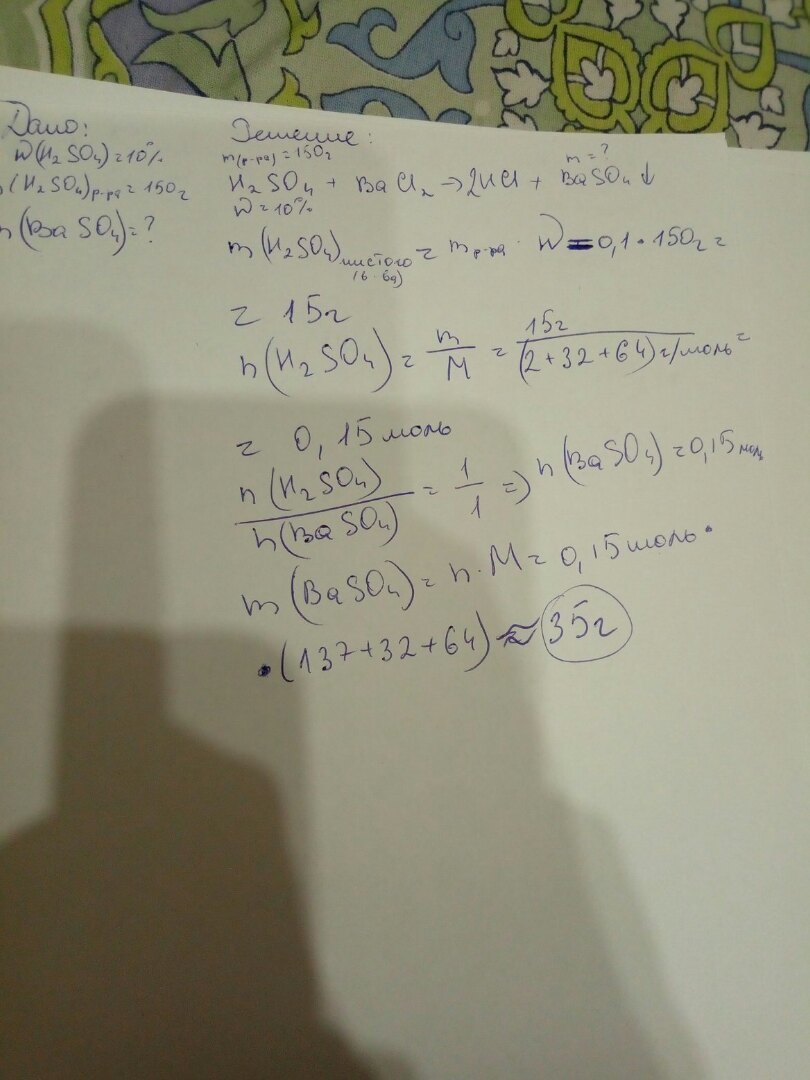 Дано:
W(H₂SO₄)=10%
(H₂SO₄)р-ра = 150г
(BaSO₄)=?
Решение:
m(р-ра)=150г
m=?
H₂SO₄ + BaCl₂ → 2HCl + BaSO₄↓
W=10%
m(H₂SO₄)чистого = mр-ра · W = 0,1 · 150г =
= 15г
n(H₂SO₄) = m/M = 15г/(2+32+64)г/моль =
= 0,15 моль
n(H₂SO₄)/n(BaSO₄) = 1/1 => n(BaSO₄) = 0,15 моль
m(BaSO₄) = n·M = 0,15 моль ·
· (137+32+64) ≈ 35г